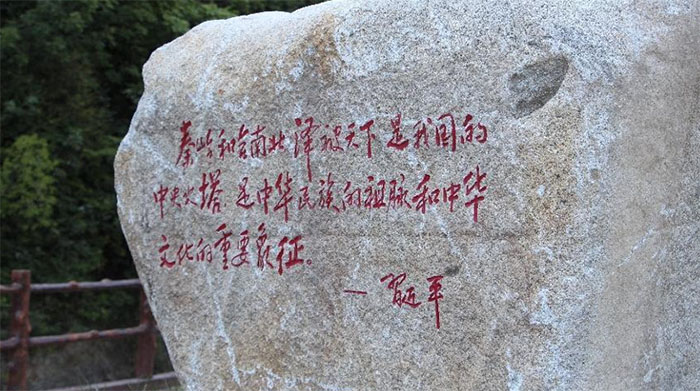 秦岭和合南北 泽被天下 是我国的
中央水塔 是中华民族的祖脉和中华
文化的重要象征。
—习近平